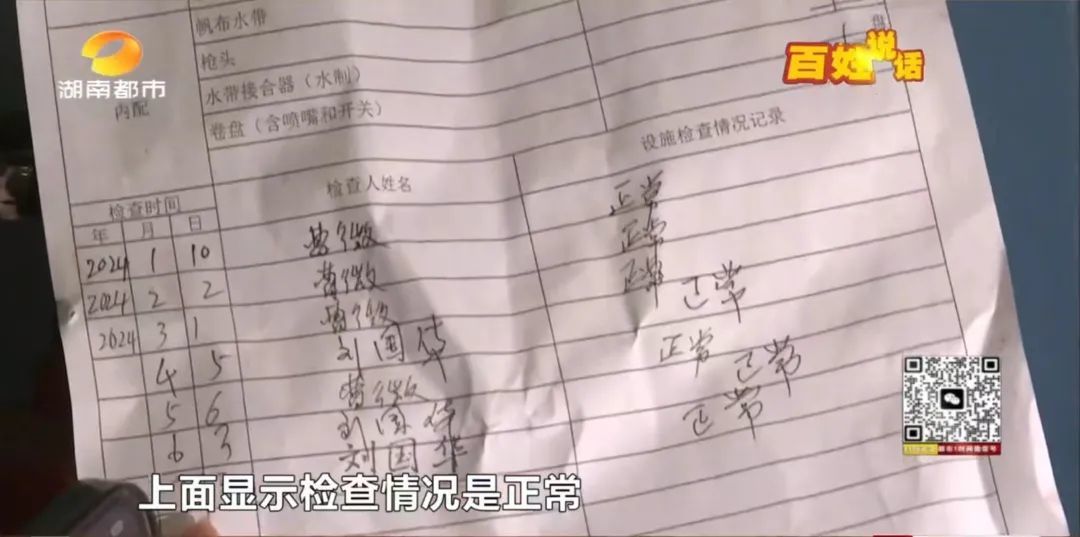 湖南都市
百姓说话
帆布水带
枪头
盘
水带接合器（水制）
内配
卷盘（含喷嘴和开关）
检查时间 检查人姓名 设施检查情况记录
年 月 日
2024 1 10 正常
2024 2 2 正常
2024 3 1 正常
4 5 刘国华 正常
5 6 正常
6 3 刘国华 正常
刘国华 正常
上面显示检查情况是正常